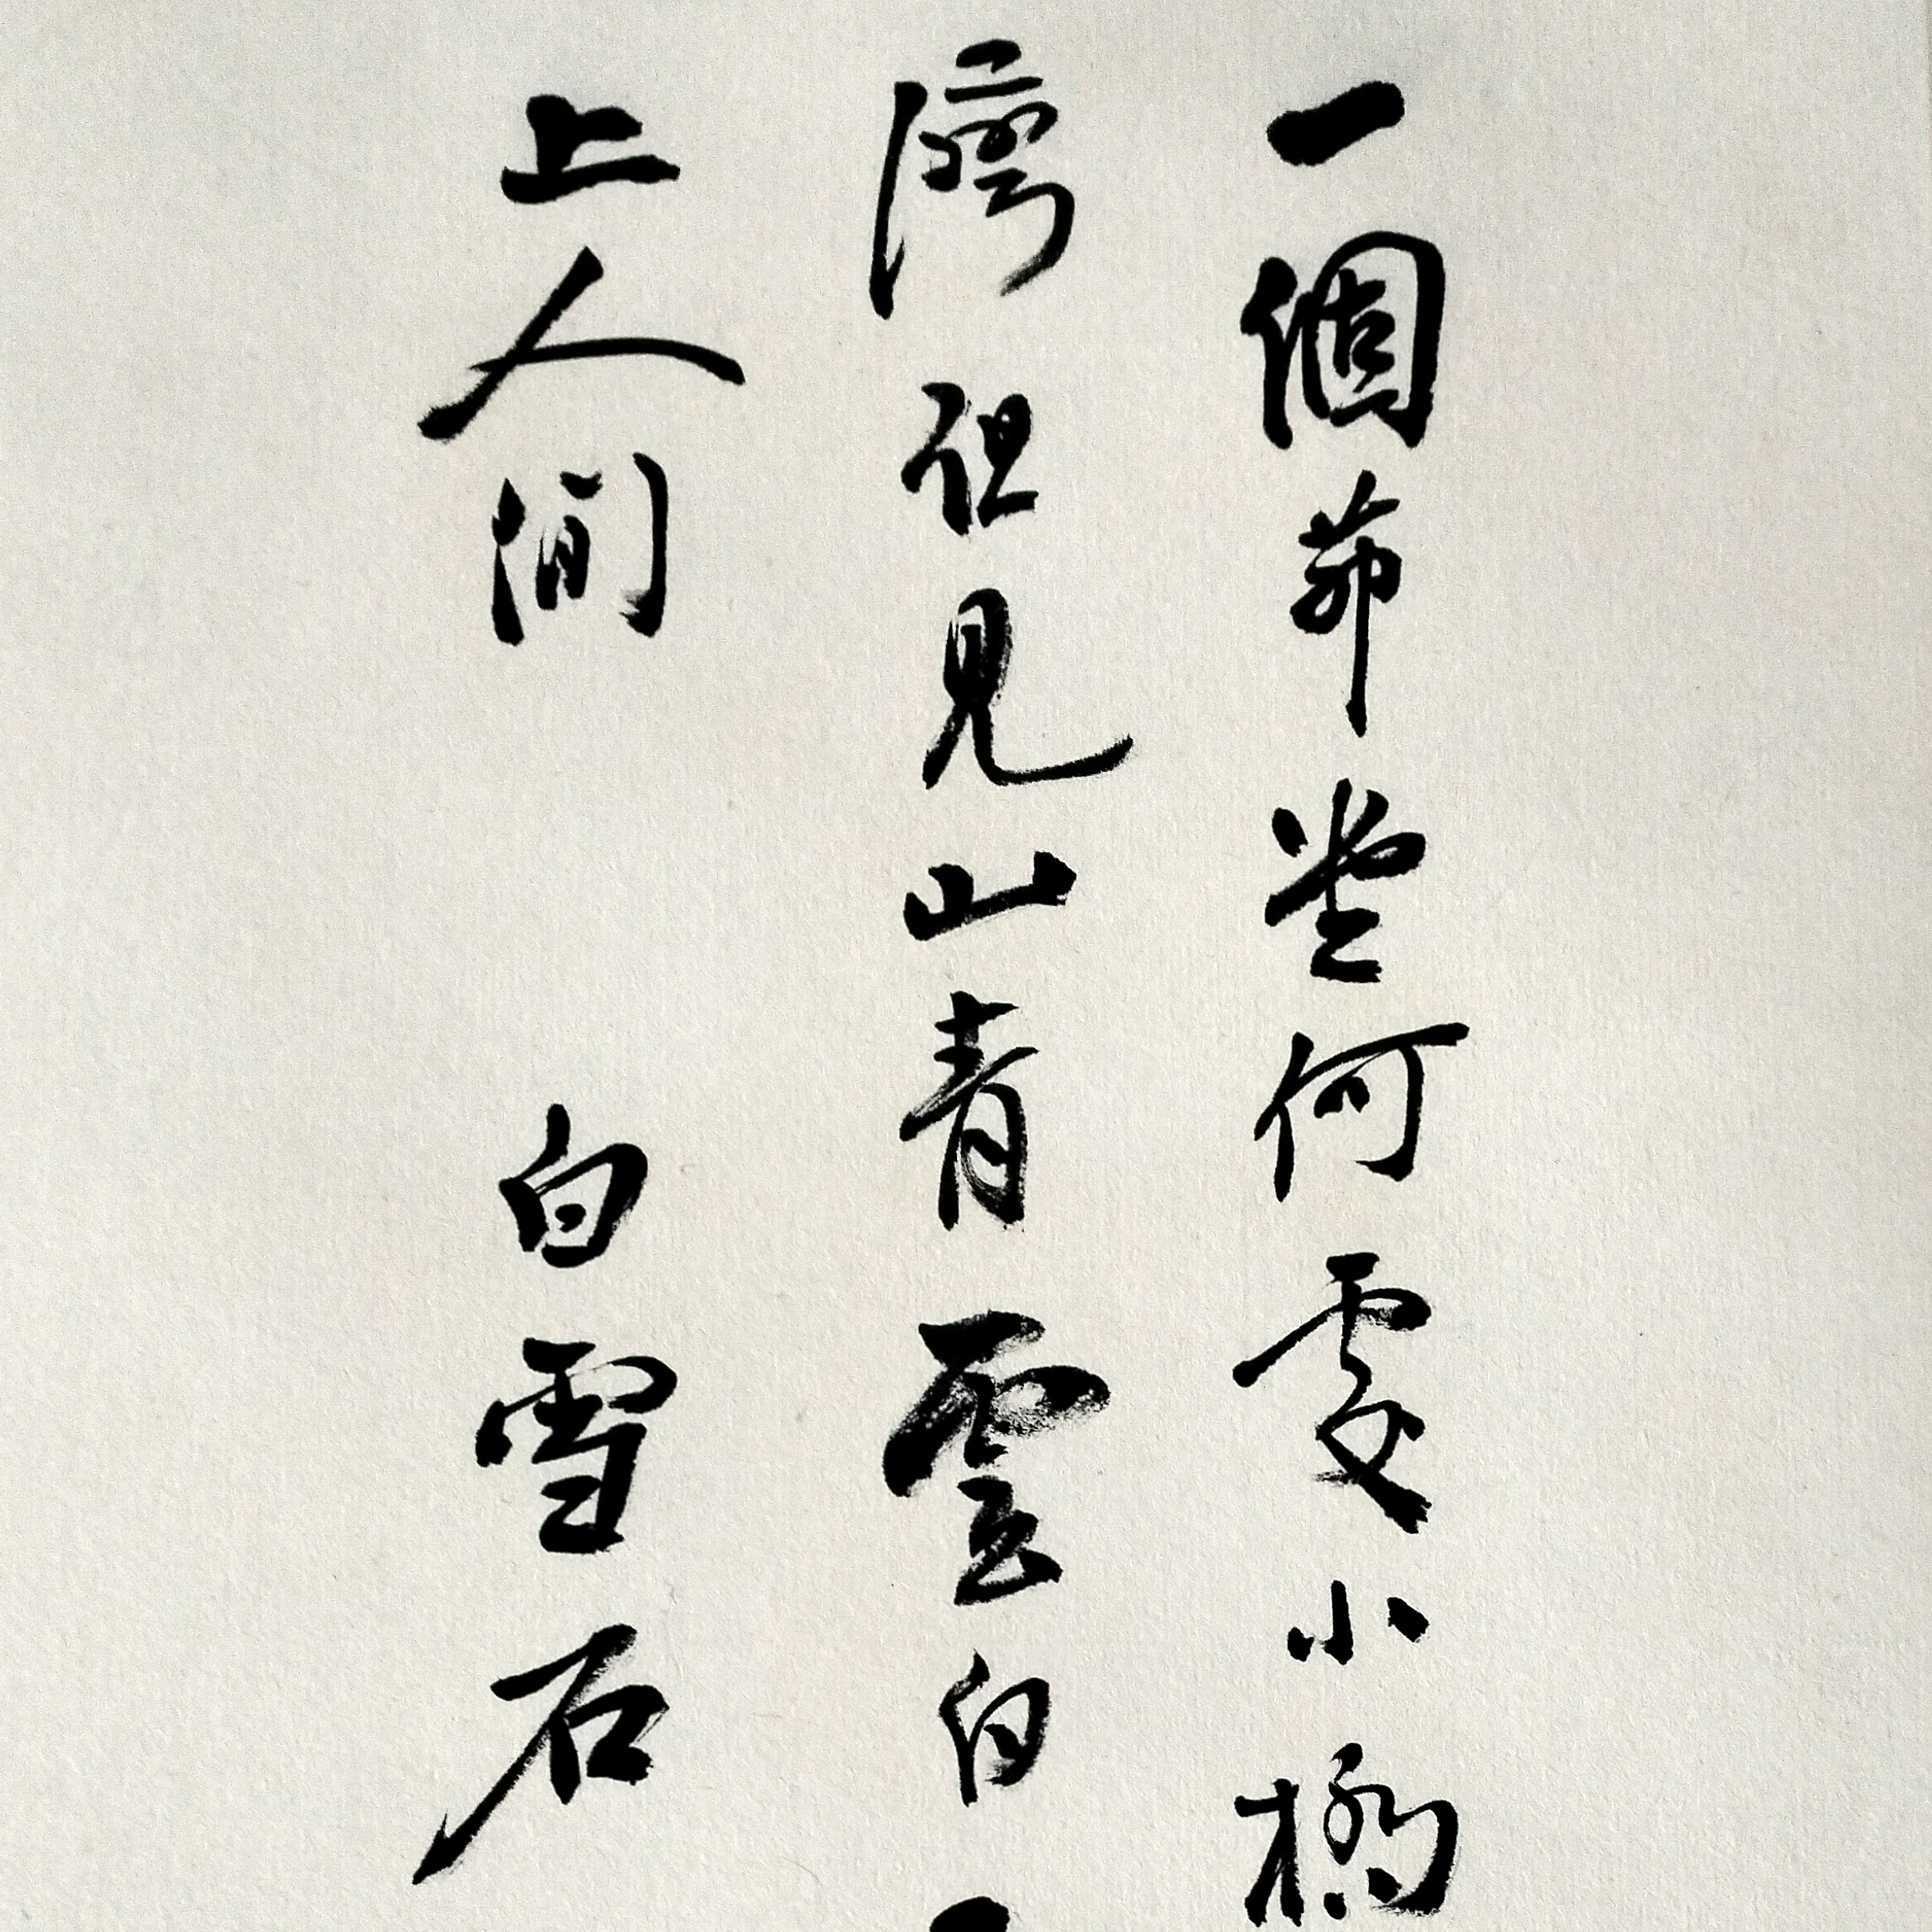 一個茆堂何處小橋
灣但見山青雲白
上人间 白雪石